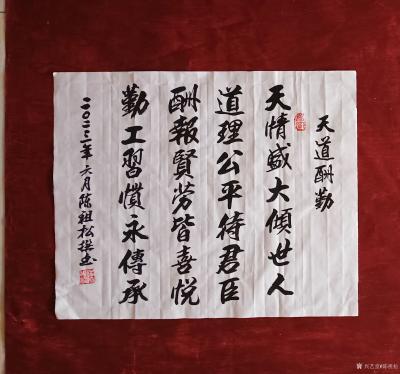 天道酬勤
天情盛大傾世人
道理公平待君臣
酬報賢勞皆喜悅
勤工習慣永傳承
二〇二三年六月陈祖松撰书